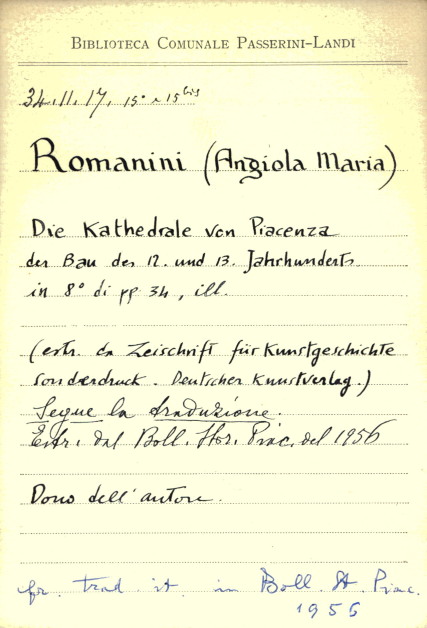 BIBLIOTECA COMUNALE PASSERINI-LANDI
34.II.17, 15° e 15bis
Romanini (Angiola Maria)
Die Kathedrale von Piacenza
der Bau des 12. und 13. Jahrhunderts
in 8° di pp 34, ill.
(estr. da Zeischrift für Kunstgeschichte
sonderdruck. Deutscher Kunstverlag.)
Segue la traduzione.
Estr. dal Boll. Stor. Piac. del 1956
Dono dell'autore.
trad it in Boll. St. Piac.
1956